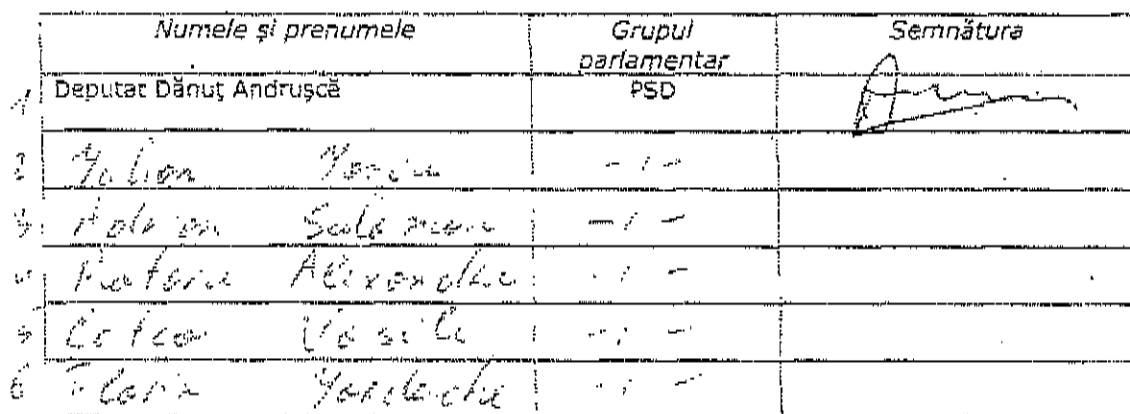 Numele și prenumele Grupul parlamentar Semnătura
1 Deputat Dănuț Andrușcă PSD
2 Iulian Iancu -I-
3 Adrian Solomon -I-
4 Alexandru -I-
5 Cocoș Vasile -I-
6 Florin Iordache -I-